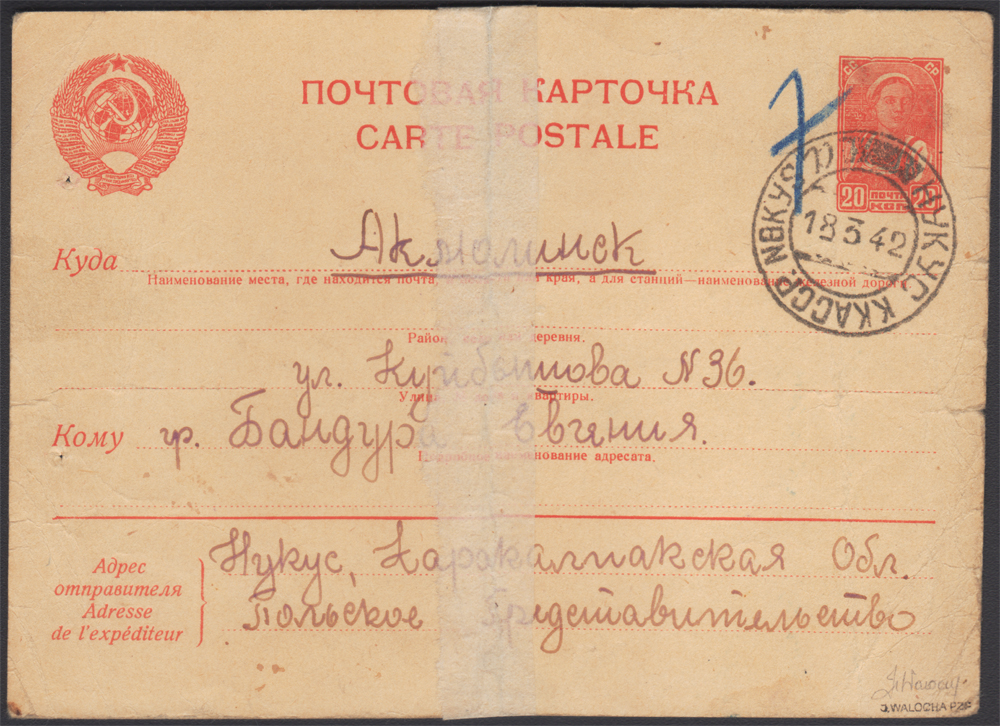 ПОЧТОВАЯ КАРТОЧКА
CARTE POSTALE
СС СР
20 ПОЧТА 20
КОП
НУКУС ККАССР
18 3 42
Куда Акмолинск
Наименование места, где находится почта, края, а для станций—наименование железной дороги.
Район, деревня.
ул. Куйбышова N 36.
Улица квартиры.
Кому гр. Бандура Евгения.
наименование адресата.
Адрес отправителя
Нукус, Каракалпакская Обл.
Adresse de l'expéditeur
Польское Представительство
J.WALOCHA PZF